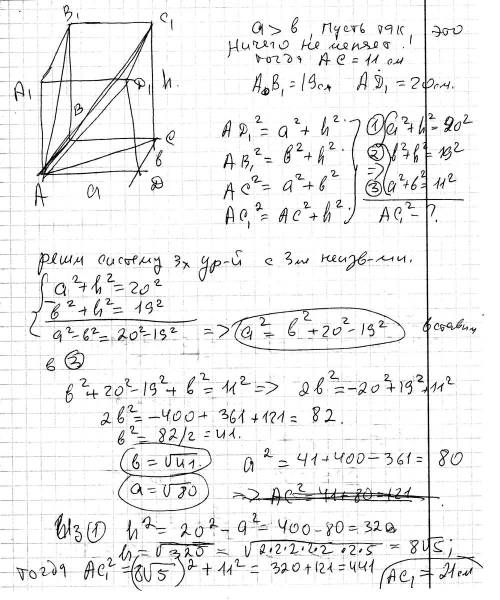 B₁ C₁
A₁ D₁ h.
B C
A a D в
a > в, Пусть так, это
ничего не меняет!
тогда AC = 11 см
A₀B₁ = 19см AD₁ = 20см.
AD₁² = a² + h² ① a² + h² = 20²
AB₁² = в² + h² ② в² + h² = 19²
AC² = a² + в² => ③ a² + в² = 11²
AC₁² = AC² + h² AC₁² - ?
реши систему 3х ур-й с 3мя неизв-ми.
a² + h² = 20²
- в² + h² = 19²
a² - в² = 20² - 19² => a² = в² + 20² - 19² вставим
в ③
в² + 20² - 19² + в² = 11² => 2в² = -20² + 19² + 11²
2в² = -400 + 361 + 121 = 82.
в² = 82/2 = 41.
в = √41. a² = 41 + 400 - 361 = 80
a = √80 => AC² = 41 + 80 = 121
Из ① h² = 20² - a² = 400 - 80 = 320
h = √320 = √2·2·2·2·2·2·5 = 8√5;
тогда AC₁² = (8√5)² + 11² = 320 + 121 = 441 AC₁ = 21см